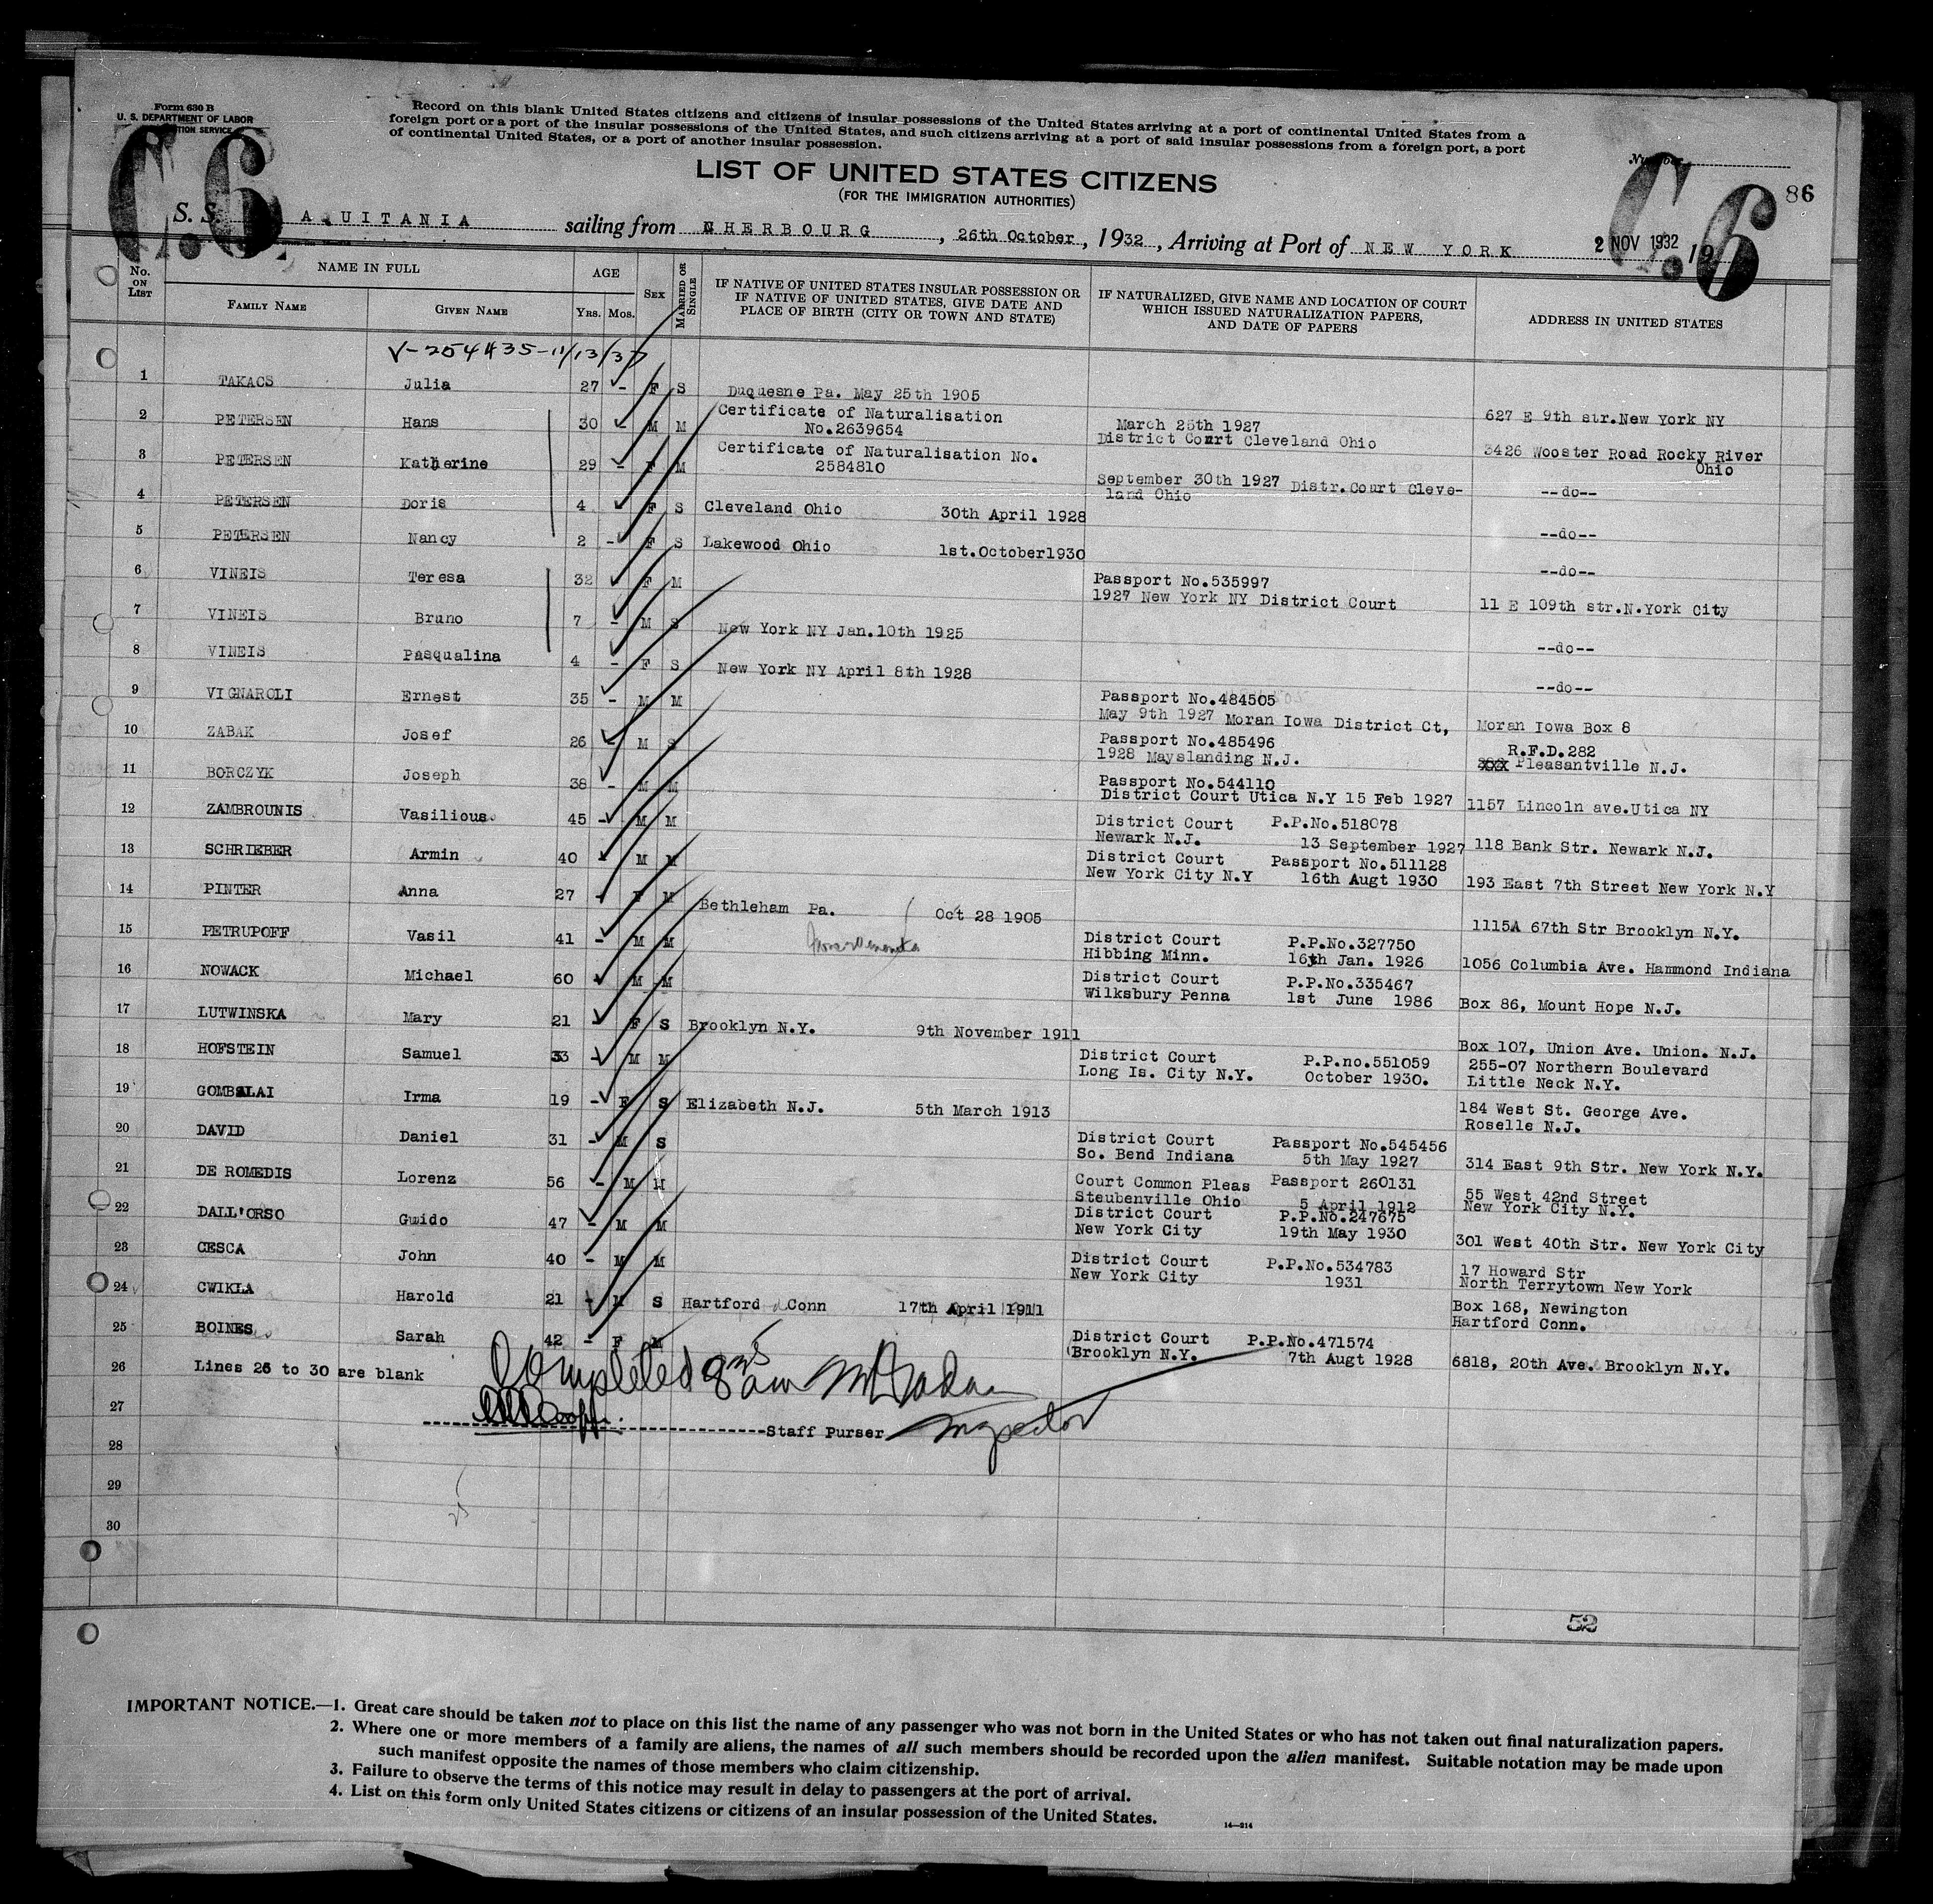 Form 630 B
U. S. DEPARTMENT OF LABOR
Record on this blank United States citizens and citizens of insular possessions of the United States arriving at a port of continental United States from a
foreign port or a port of the insular possessions of the United States, and such citizens arriving at a port of said insular possessions from a foreign port, a port
of continental United States, or a port of another insular possession.
C.6
C.6
Number
86
LIST OF UNITED STATES CITIZENS
(FOR THE IMMIGRATION AUTHORITIES)
S. S. A UITANIA sailing from CHERBOURG, 26th October, 1932, Arriving at Port of NEW YORK 2 NOV 1932 19
No. ON LIST
NAME IN FULL
FAMILY NAME
GIVEN NAME
AGE
Yrs. Mos.
SEX
MARRIED OR SINGLE
IF NATIVE OF UNITED STATES INSULAR POSSESSION OR
IF NATIVE OF UNITED STATES, GIVE DATE AND
PLACE OF BIRTH (CITY OR TOWN AND STATE)
IF NATURALIZED, GIVE NAME AND LOCATION OF COURT
WHICH ISSUED NATURALIZATION PAPERS,
AND DATE OF PAPERS
ADDRESS IN UNITED STATES
V-254435-11/13/37
1 TAKACS Julia 27 - F S Duquesne Pa. May 25th 1905 627 E 9th str.New York NY
2 PETERSEN Hans 30 - M M Certificate of Naturalisation
No.2639654 March 25th 1927
District Court Cleveland Ohio 3426 Wooster Road Rocky River
Ohio
3 PETERSEN Katherine 29 - F M Certificate of Naturalisation No.
2584810 September 30th 1927 Distr.Court Cleve-
land Ohio --do--
4 PETERSEN Doris 4 - F S Cleveland Ohio 30th April 1928 --do--
5 PETERSEN Nancy 2 - F S Lakewood Ohio 1st.October1930 --do--
6 VINEIS Teresa 32 - F M Passport No.535997
1927 New York NY District Court 11 E 109th str.N.York City
7 VINEIS Bruno 7 - M S New York NY Jan.10th 1925 --do--
8 VINEIS Pasqualina 4 - F S New York NY April 8th 1928 --do--
9 VIGNAROLI Ernest 35 - M M Passport No.484505
May 9th 1927 Moran Iowa District Ct, Moran Iowa Box 8
10 ZABAK Josef 26 - M S Passport No.485496
1928 Mayslanding N.J. R.F.D.282
Pleasantville N.J.
11 BORCZYK Joseph 38 - M M Passport No.544110
District Court Utica N.Y 15 Feb 1927 1157 Lincoln ave.Utica NY
12 ZAMBROUNIS Vasilious 45 - M M District Court P.P.No.518078
Newark N.J. 13 September 1927 118 Bank Str. Newark N.J.
13 SCHRIEBER Armin 40 - M M District Court Passport No.511128
New York City N.Y 16th Augt 1930 193 East 7th Street New York N.Y
14 PINTER Anna 27 - F M Bethleham Pa. Oct 28 1905 1115A 67th Str Brooklyn N.Y.
15 PETRUPOFF Vasil 41 - M M District Court P.P.No.327750
Hibbing Minn. 16th Jan. 1926 1056 Columbia Ave. Hammond Indiana
16 NOWACK Michael 60 - M M District Court P.P.No.335467
Wilksbury Penna 1st June 1986 Box 86, Mount Hope N.J.
17 LUTWINSKA Mary 21 - F S Brooklyn N.Y. 9th November 1911 Box 107, Union Ave. Union. N.J.
18 HOFSTEIN Samuel 33 - M M District Court P.P.no.551059
Long Is. City N.Y. October 1930. 255-07 Northern Boulevard
Little Neck N.Y.
19 GOMBALAI Irma 19 - F S Elizabeth N.J. 5th March 1913 184 West St. George Ave.
Roselle N.J.
20 DAVID Daniel 31 - M S District Court Passport No.545456
So. Bend Indiana 5th May 1927 314 East 9th Str. New York N.Y.
21 DE ROMEDIS Lorenz 56 - M M Court Common Pleas Passport 260131
Steubenville Ohio 5 April 1912 55 West 42nd Street
New York City N.Y.
22 DALL'ORSO Guido 47 - M M District Court P.P.No.247675
New York City 19th May 1930 301 West 40th Str. New York City
23 CESCA John 40 - M M District Court P.P.No.534783
New York City 1931 17 Howard Str
North Terrytown New York
24 CWIKLA Harold 21 - M S Hartford Conn 17th April 1911 Box 168, Newington
Hartford Conn.
25 BOINES Sarah 42 - F M District Court P.P.No.471574
Brooklyn N.Y. 7th Augt 1928 6818, 20th Ave. Brooklyn N.Y.
26 Lines 26 to 30 are blank
Completed 8 am
27
Staff Purser Inspector
28
29
30
52
IMPORTANT NOTICE.—1. Great care should be taken not to place on this list the name of any passenger who was not born in the United States or who has not taken out final naturalization papers.
2. Where one or more members of a family are aliens, the names of all such members should be recorded upon the alien manifest. Suitable notation may be made upon
such manifest opposite the names of those members who claim citizenship.
3. Failure to observe the terms of this notice may result in delay to passengers at the port of arrival.
4. List on this form only United States citizens or citizens of an insular possession of the United States.
14—214